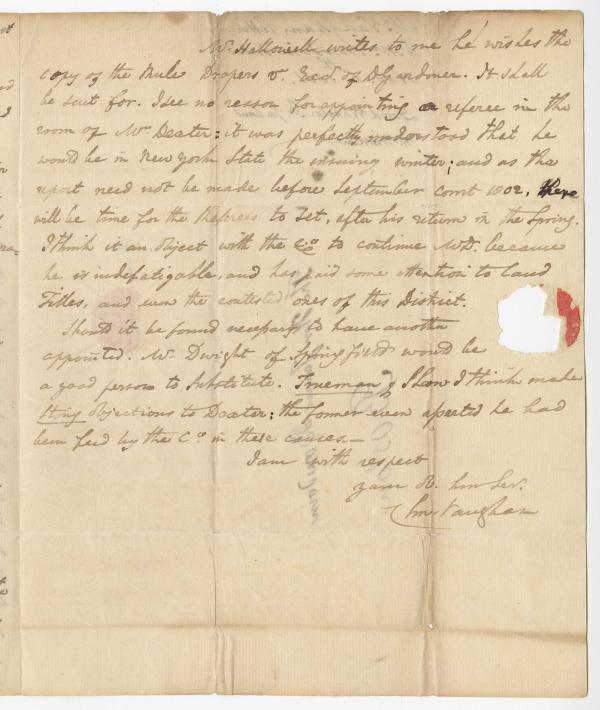 Mr. Hallowell writes to me he wishes the
copy of the Rule Drapers v. Exd. of D Gardiner. It shall
be sent for. I see no reason for appointing a referee in the
room of Mr. Dexter: it was perfectly understood that he
would be in New York State the ensuing winter; and as the
report need not be made before September court 1802, there
will be time for the Referees to set, after his return in the Spring.
I think it an object with the Co. to continue Mr D. because
he is indefatigable, and has paid some attention to Land
Titles, and even the contested ones of this District.
Should it be found necessary to have another
appointed. Mr. Dwight of Springfield would be
a good person to Substitute. Trueman & Shaw I think make
strong objections to Dexter; the former even asserted he had
been feed by the Co. in these causes.—
I am with respect
Sev.
Vaughan